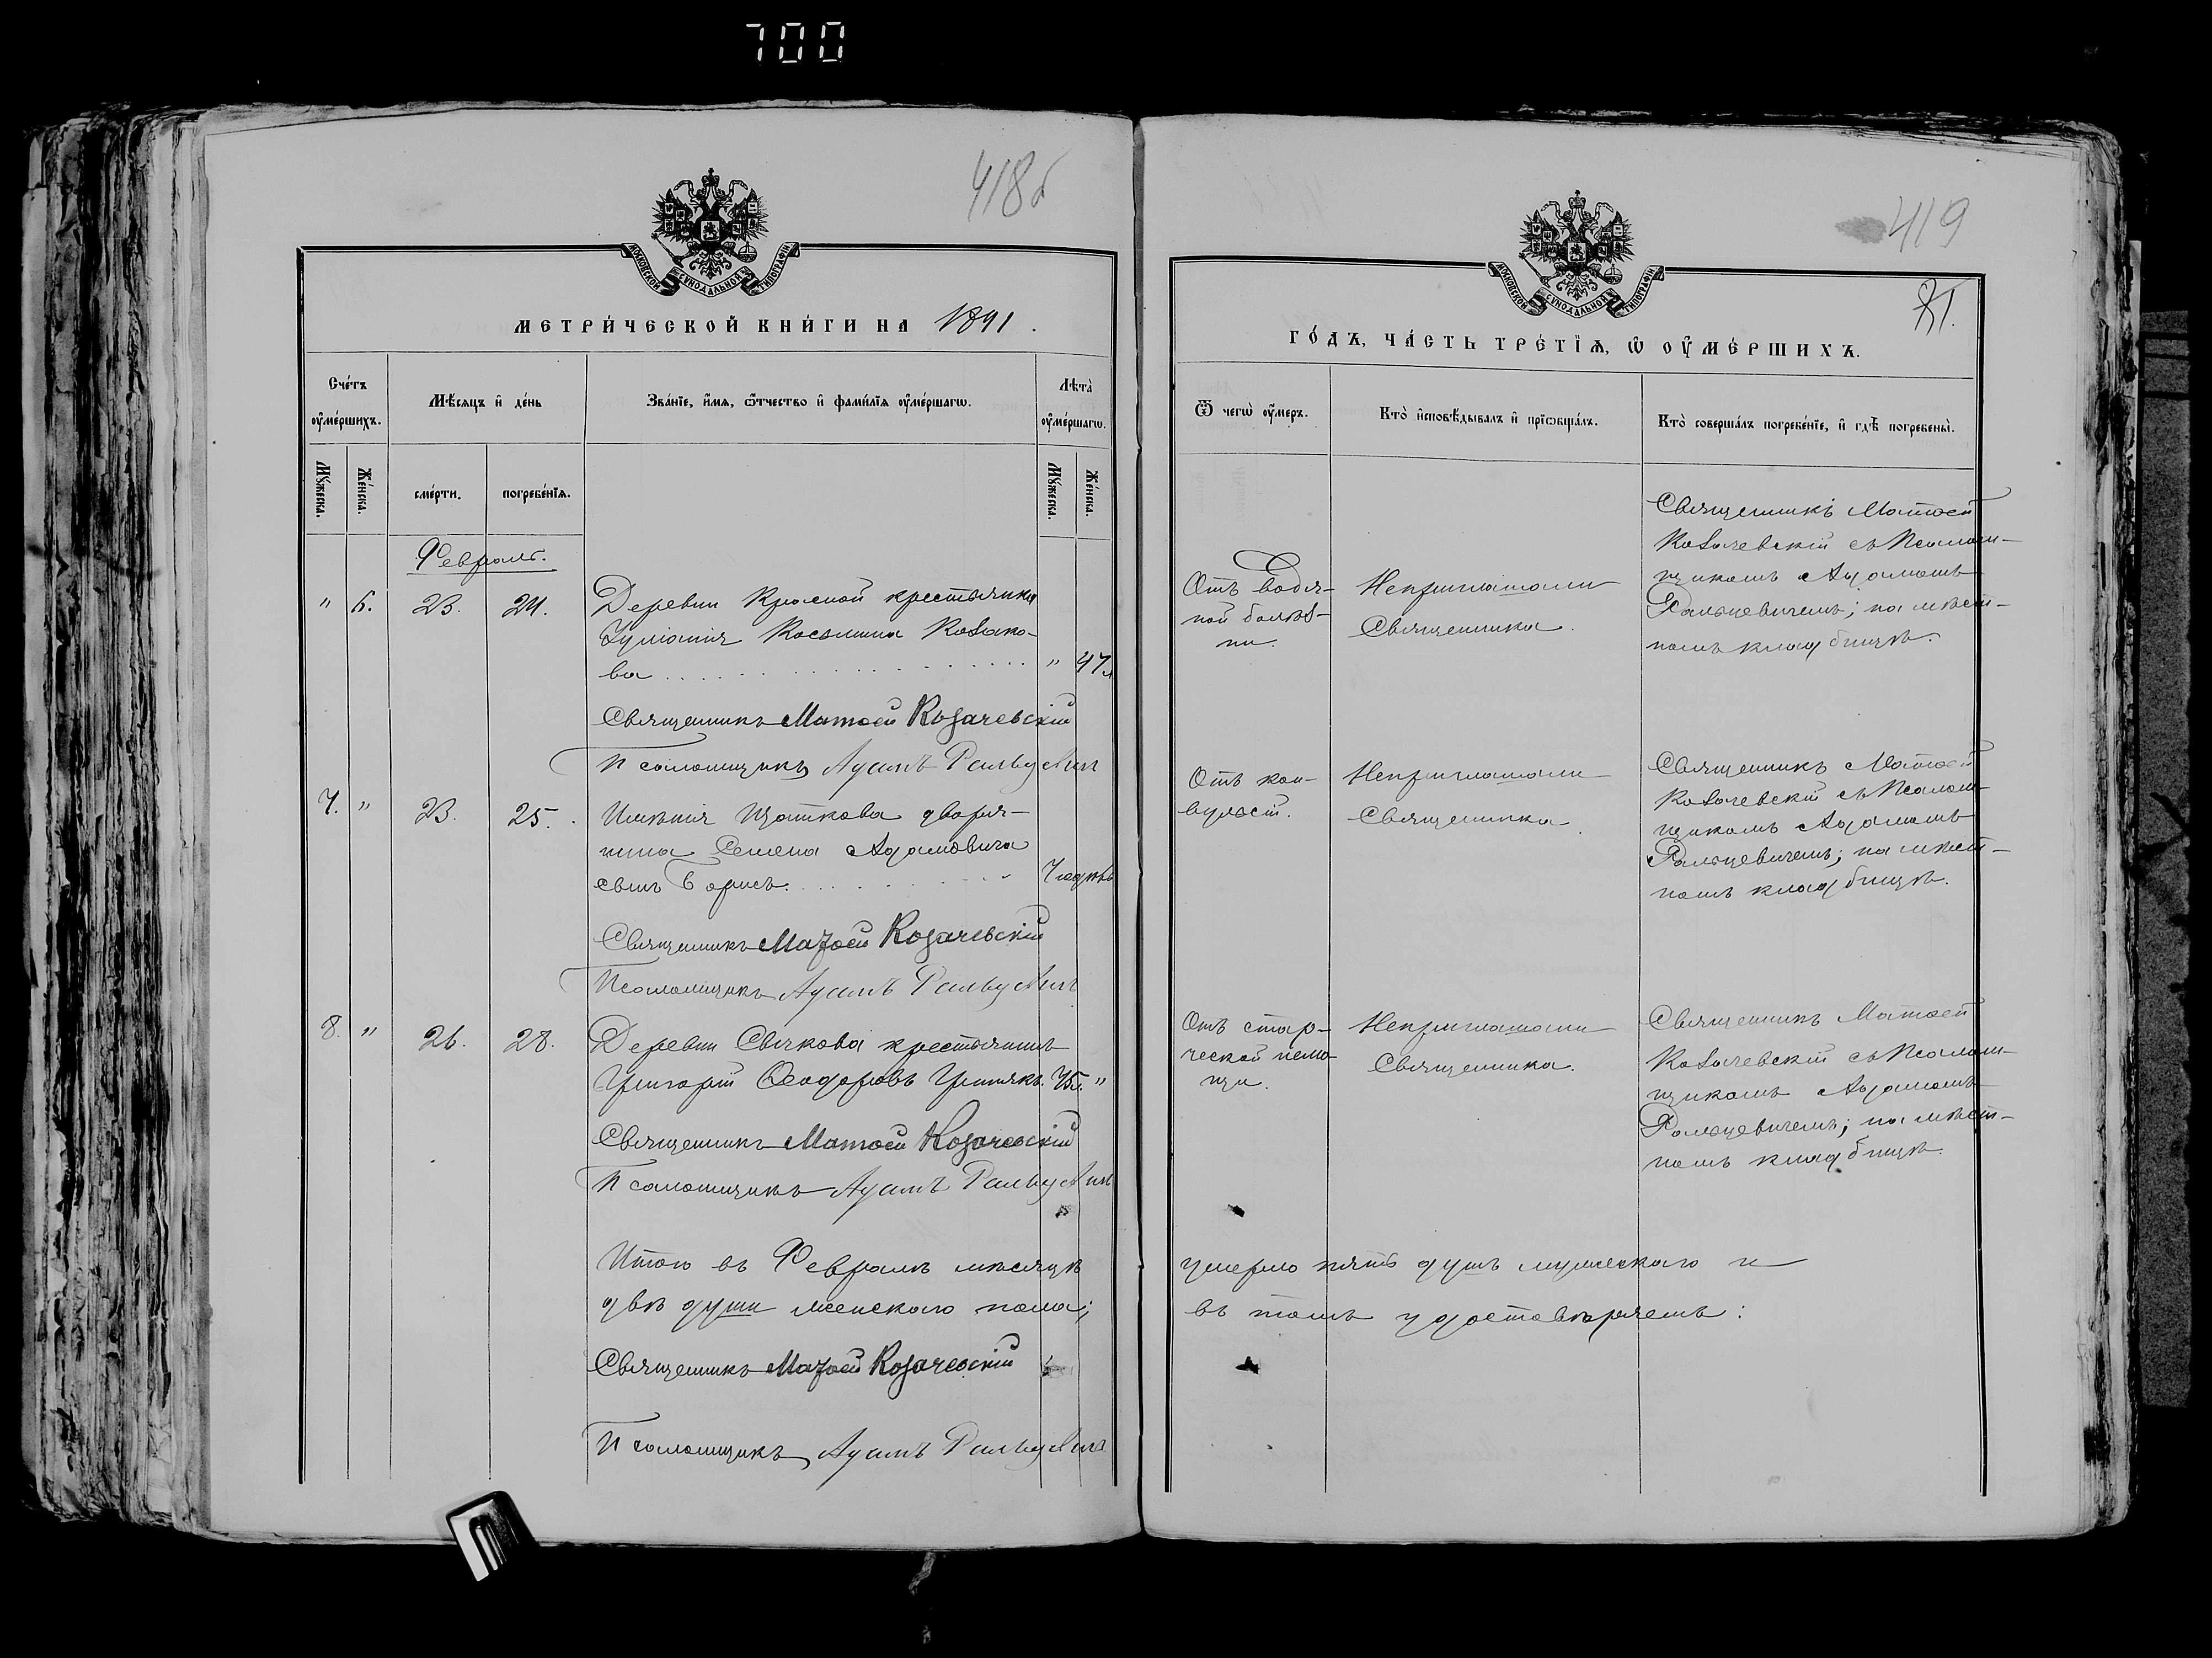 700
418б
МОСКОВСКОЙ СѴНОДАЛЬНОЙ ТИПОГРАФІИ
МЕТРИ́ЧЕСКОЙ КНИ́ГИ НА 1891.
Сче́тъ ᲂу҆ме́ршихъ.
Мѣ́сяцъ и҆ де́нь
Зва́нїе, и҆́мѧ, ѻ҆́тчество и҆ фами́лїѧ ᲂу҆ме́ршагѡ.
Лѣта̀ ᲂу҆ме́ршагѡ.
Мꙋ́жеска.
Же́нска.
сме́рти.
погребе́нїѧ.
Мꙋ́жеска.
Же́нска.
Февраль.
" 6. 23. 24.
Деревни Красной крестьянка
Іуліанія Космина Козако-
ва . . . . . . . . . . " 47 л
Священникъ Матѳей Козачевскій
Псаломщикъ Адамъ
7. " 23. 25.
Имѣнія Щоткова дворя-
нина Семена Адамовича
сынъ Борисъ. . . . . . . . 7 годовъ
Священникъ Матѳей Козачевскій
Псаломщикъ Адамъ
8. " 26. 28.
Деревни Свѣкова крестьянинъ
Григорій Ѳеодоровъ 75 л. "
Священникъ Матѳей Козачевскій
Псаломщикъ Адамъ
Итого въ Февралѣ мѣсяцѣ
двѣ души женского пола;
Священникъ Матѳей Козачевскій
Псаломщикъ Адамъ
419
МОСКОВСКОЙ СѴНОДАЛЬНОЙ ТИПОГРАФІИ
ГО́ДЪ, ЧА́СТЬ ТРЕ́ТЇѦ, Ѡ҆ ᲂУ҆МЕ́РШИХЪ.
Ѿ чегѡ̀ ᲂу҆́меръ.
Кто̀ и҆сповѣ́дывалъ и҆ прїѡбща́лъ.
Кто̀ соверша́лъ погребе́нїе, и҆ гдѣ̀ погребены̀.
Отъ водя-
ной болѣз-
ни.
Неприглашали
Священника.
Священникъ Матѳей
Козачевскій съ Псалом-
щикомъ Адамомъ
Ральцевичемъ; на мѣст-
номъ кладбищѣ.
Отъ кон-
вульсій.
Неприглашали
Священника.
Священникъ Матѳей
Козачевскій съ Псалом-
щикомъ Адамомъ
Ральцевичемъ; на мѣст-
номъ кладбищѣ.
Отъ стар-
ческой немо-
щи.
Неприглашали
Священника.
Священникъ Матѳей
Козачевскій съ Псалом-
щикомъ Адамомъ
Ральцевичемъ; на мѣст-
номъ кладбищѣ.
умерло пять душъ мужескаго и
въ томъ удостовѣряемъ: